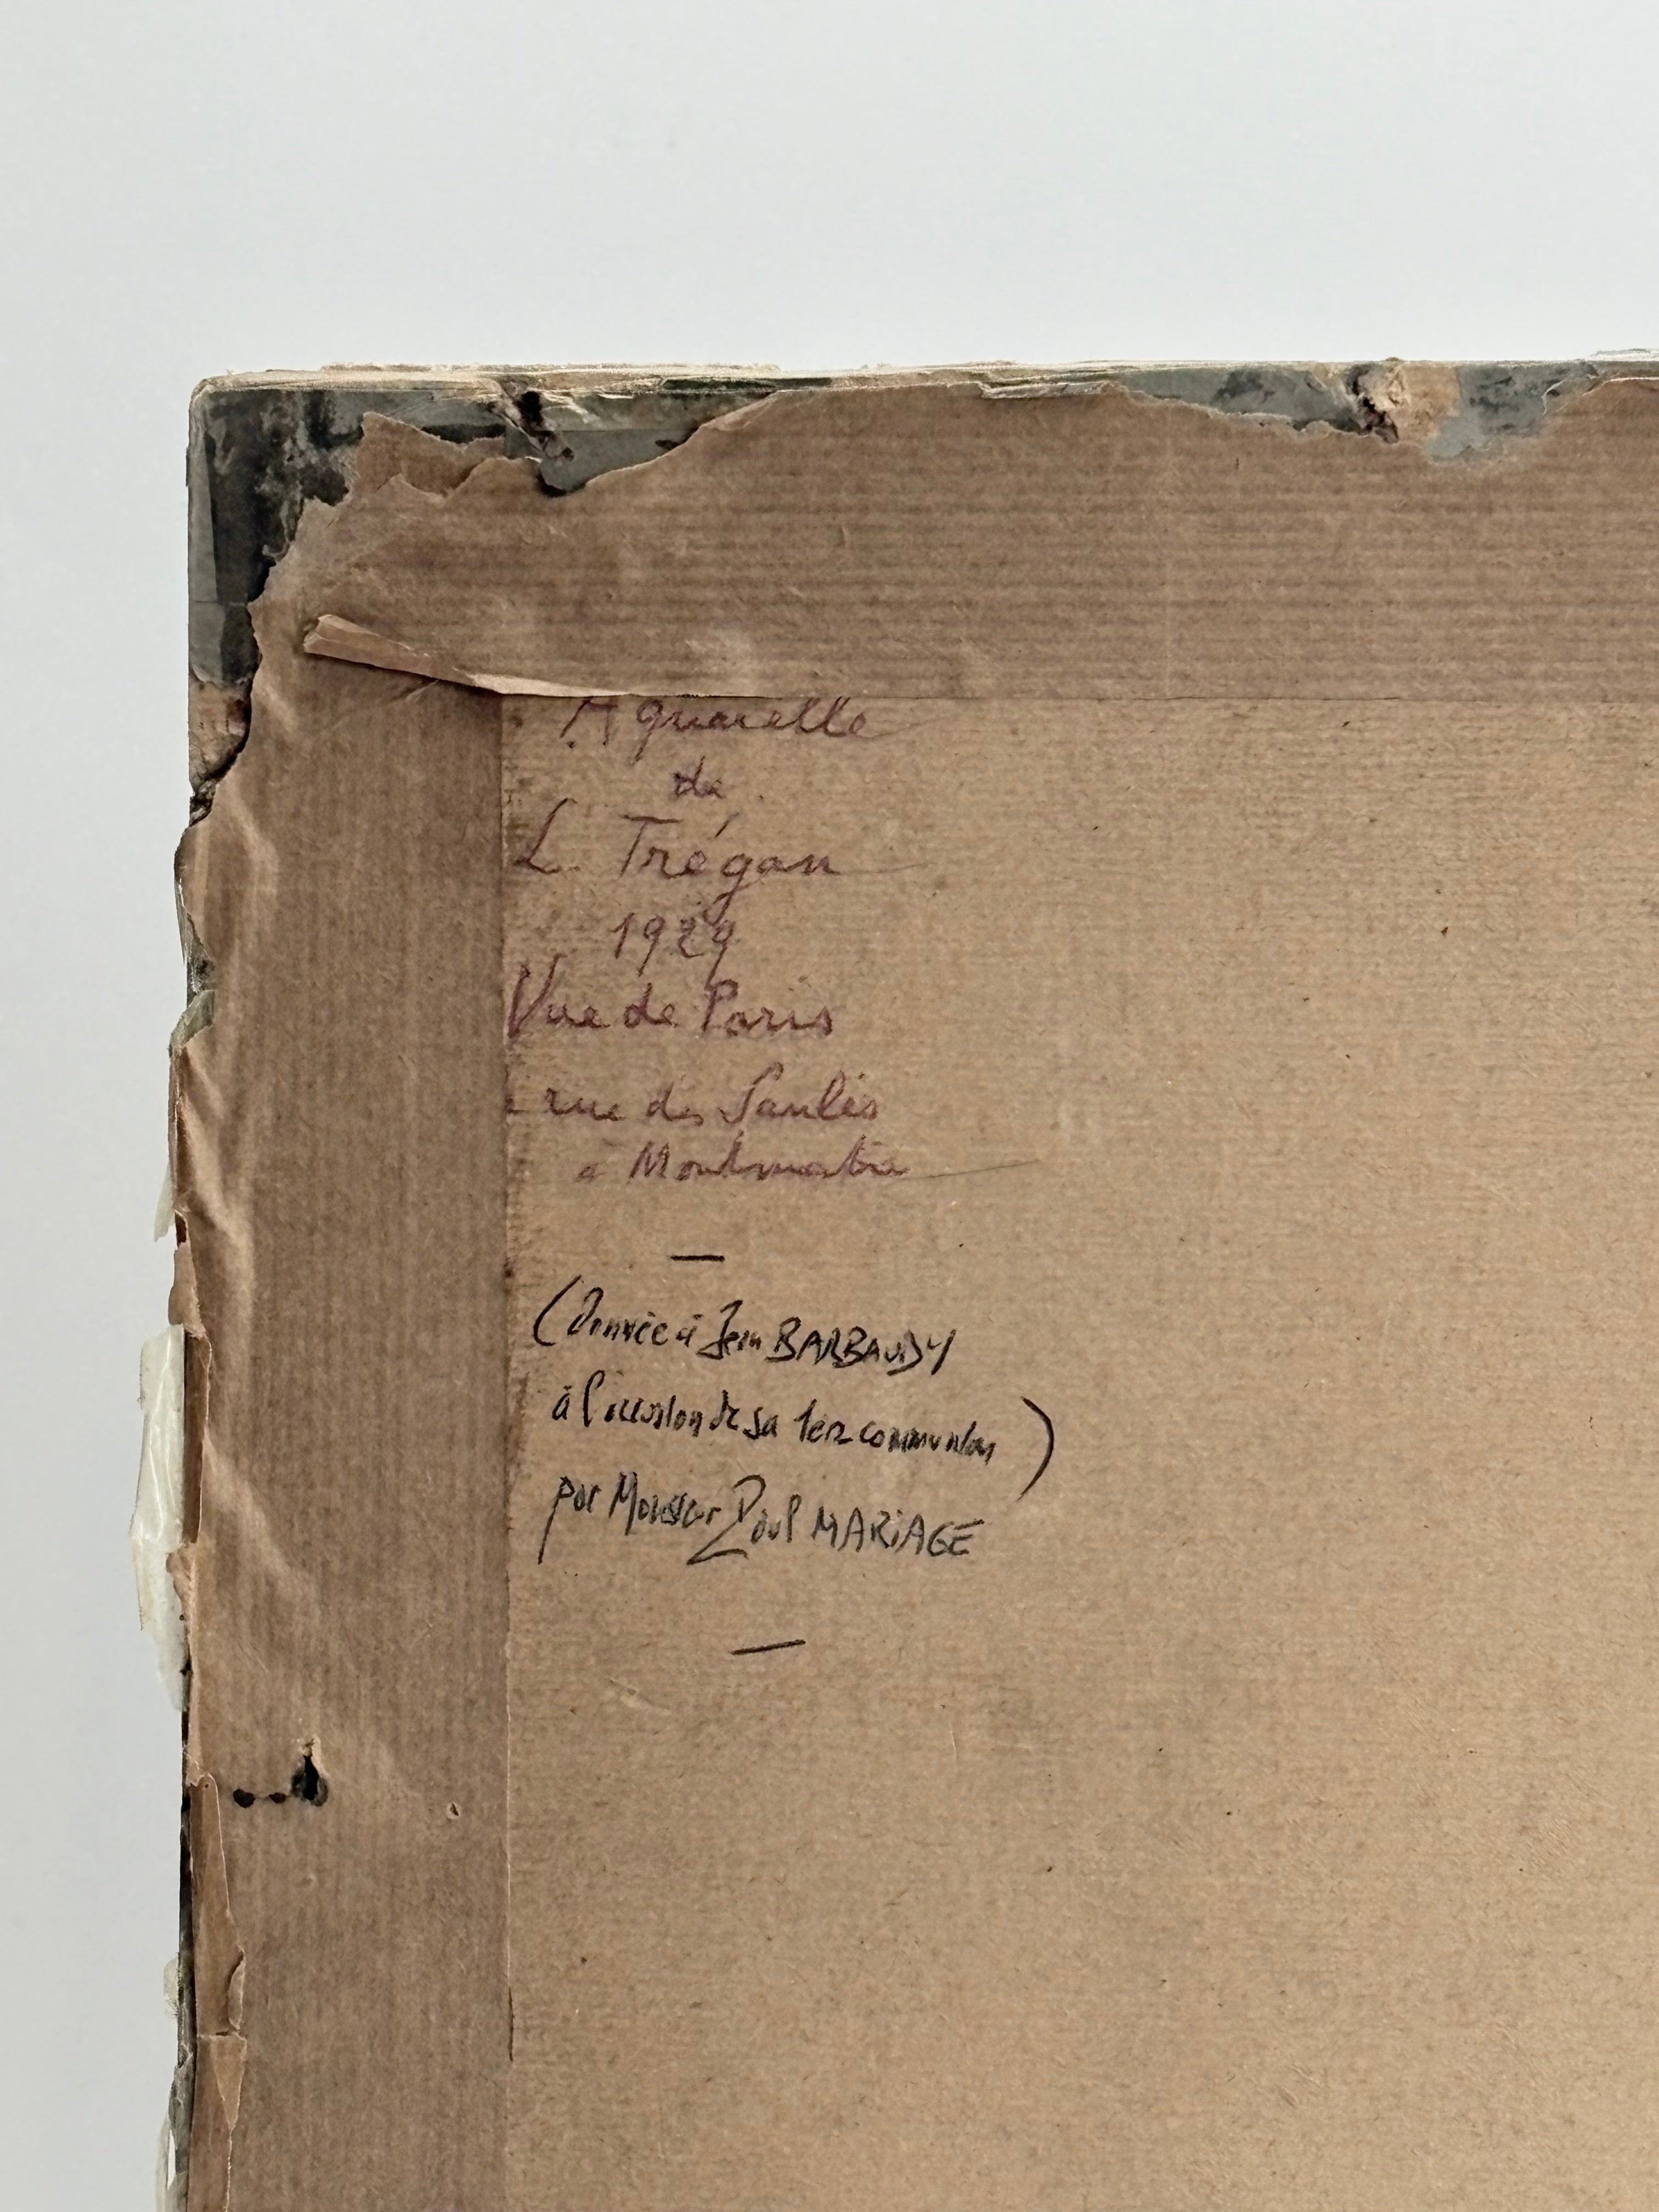 Aquarelle
de
L. Trégan
1929
Vue de Paris
rue des Saules
à Montmartre
—
(Donnée à Jean BARBAUDY
à l'occasion de sa 1ère communion)
par Monsieur Paul MARIAGE
—